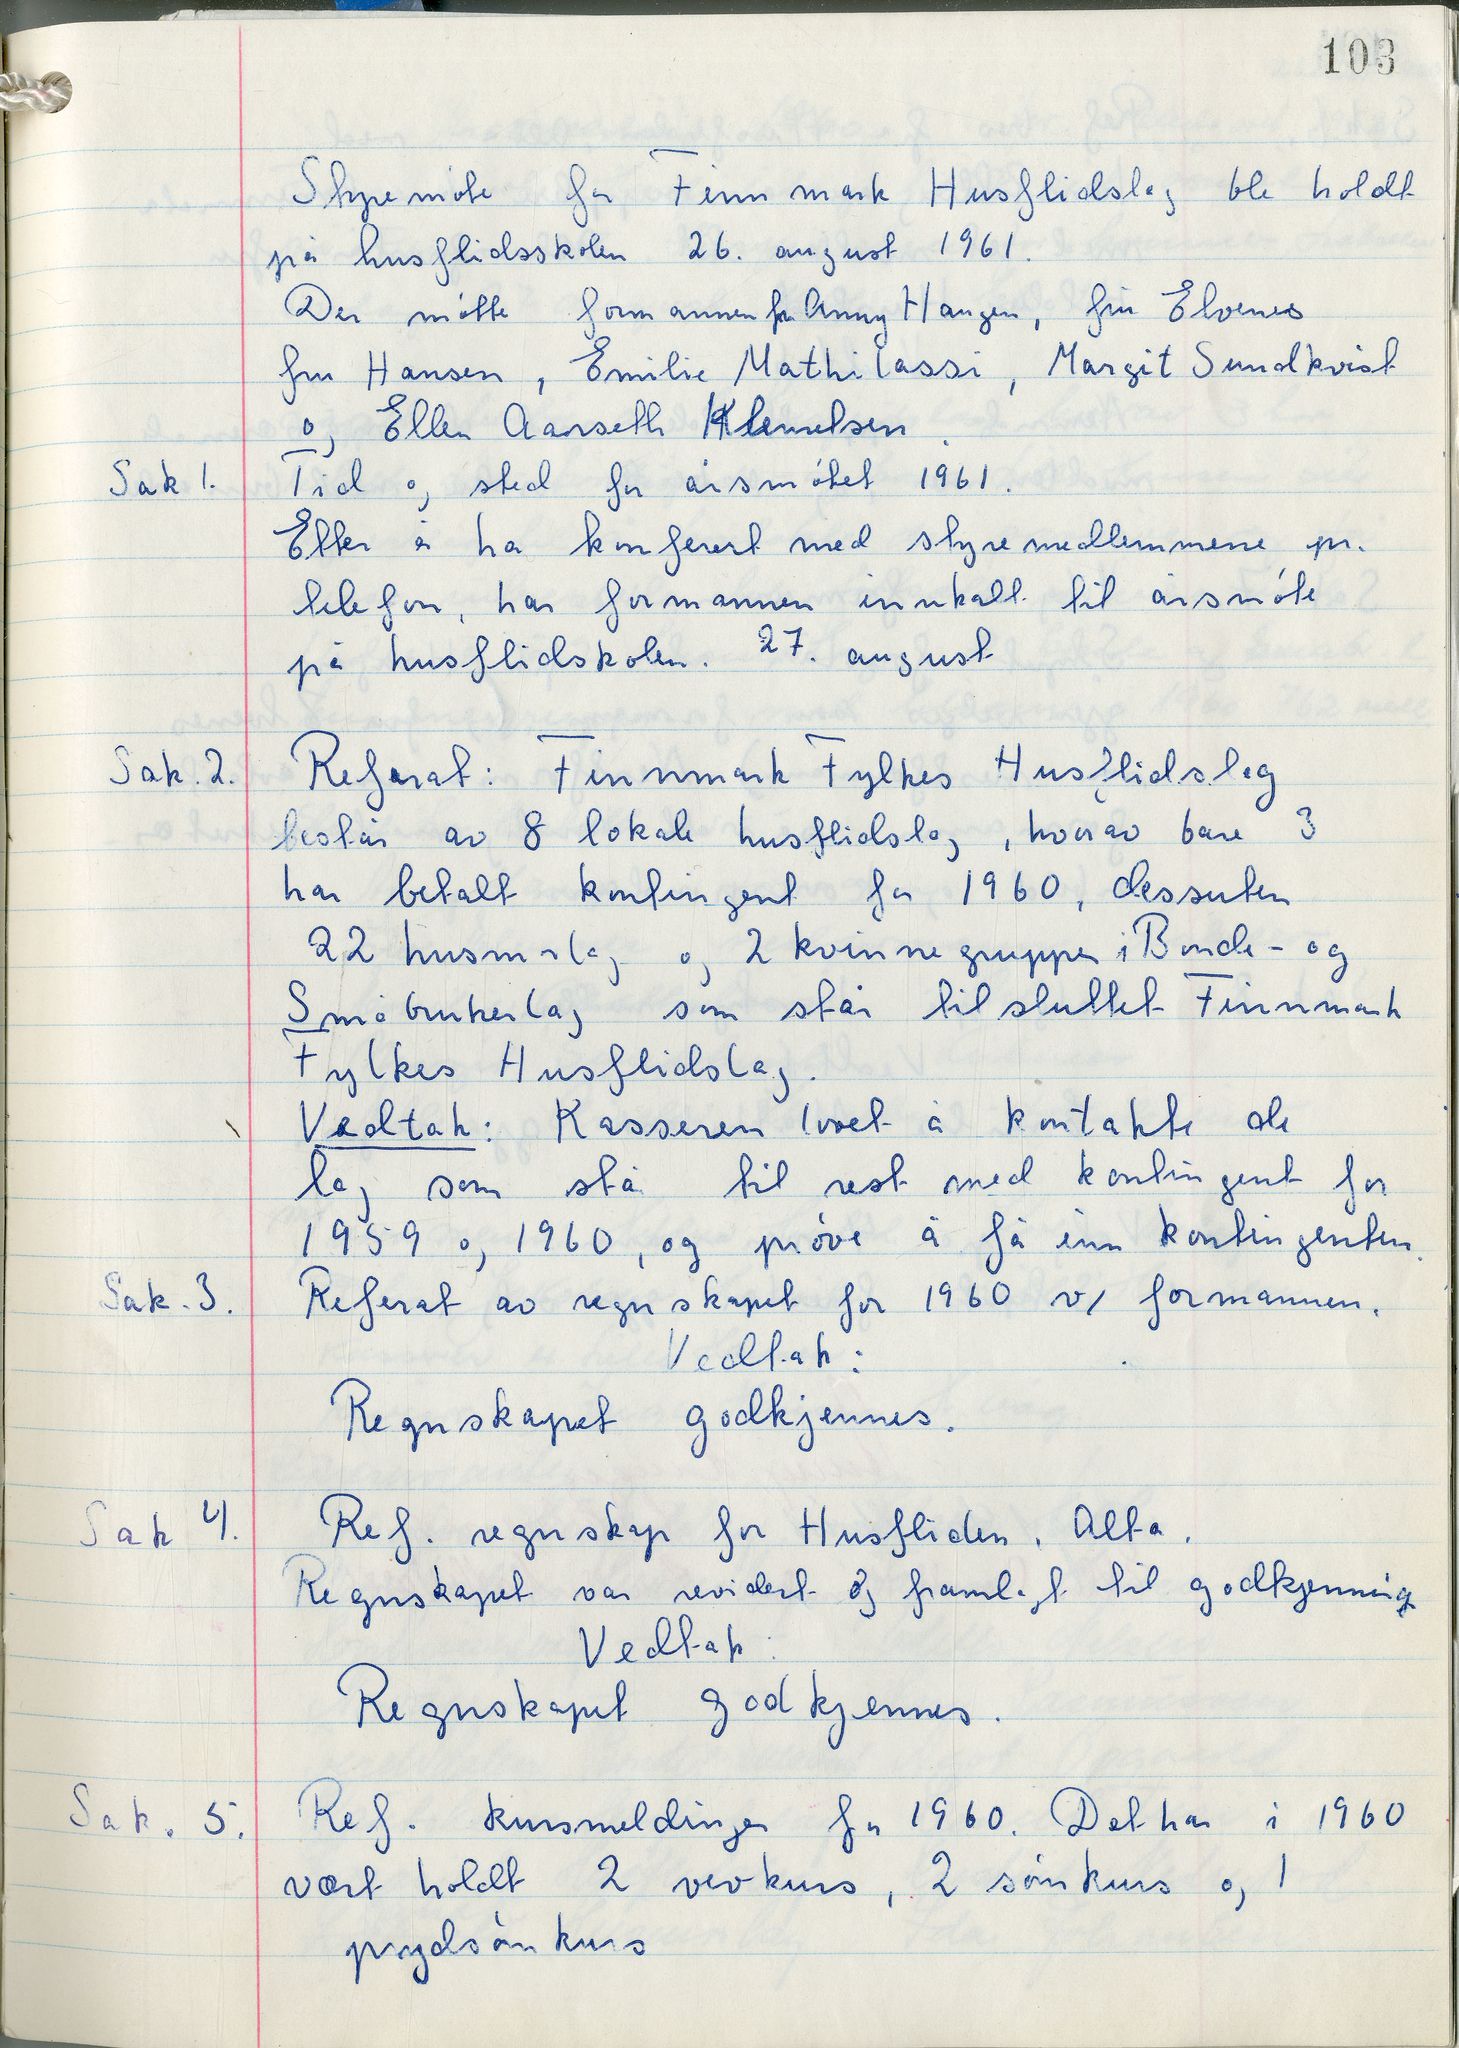 103
Styremöte for Finnmark Husflidslag ble holdt
på husflidsskolen 26. august 1961.
Der mötte formannen fru Anny Haugen, fru Elvenes
fru Hansen, Emilie Mathilassi, Margit Sundkvist
og Ellen Aarseth Klemetsen.
Sak 1. Tid og sted for årsmötet 1961.
Etter å ha konferert med styremedlemmene pr.
telefon, har formannen innkalt til årsmöte
på husflidskolen. 27. august
Sak. 2. Referat: Finnmark Fylkes Husflidslag
består av 8 lokale husflidslag, hvorav bare 3
har betalt kontingent for 1960, dessuten
22 husmorlag og 2 kvinnegrupper i Bonde- og
Småbrukerlag som står tilsluttet Finnmark
Fylkes Husflidslag.
Vedtak: Kasseren lovet å kontakte de
lag som stå til rest med kontingent for
1959 og 1960, og pröve å få inn kontingenten.
Sak. 3. Referat av regnskapet for 1960 v/ formannen.
Vedtak:
Regnskapet godkjennes.
Sak 4. Ref. regnskap for Husfliden, Alta.
Regnskapet var revidert og framlagt til godkjenning
Vedtak:
Regnskapet godkjennes.
Sak. 5. Ref. kursmeldinger for 1960. Det har i 1960
vært holdt 2 vevkurs, 2 sömkurs og 1
prydsömkurs